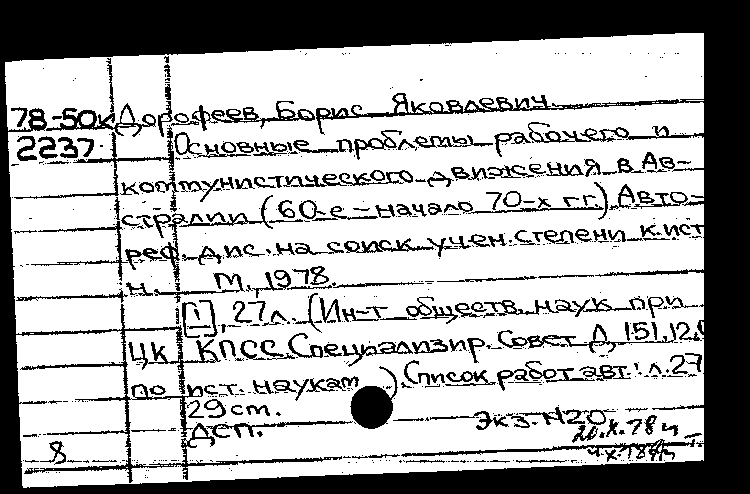 78-50к Дорофеев, Борис Яковлевич.
2237. Основные проблемы рабочего и
коммунистического движения в Ав-
стралии (60-е - начало 70-х гг.) Авто-
реф. дис. на соиск учен. степени к.ист
н. М., 1978.
[1], 27л. (Ин-т обществ. наук при
ЦК КПСС. Специализир. Совет Д 151.12.
по ист. наукам). Список работ авт.: л.27
29 ст.
ДСП. Экз. N20
20.X.78
8